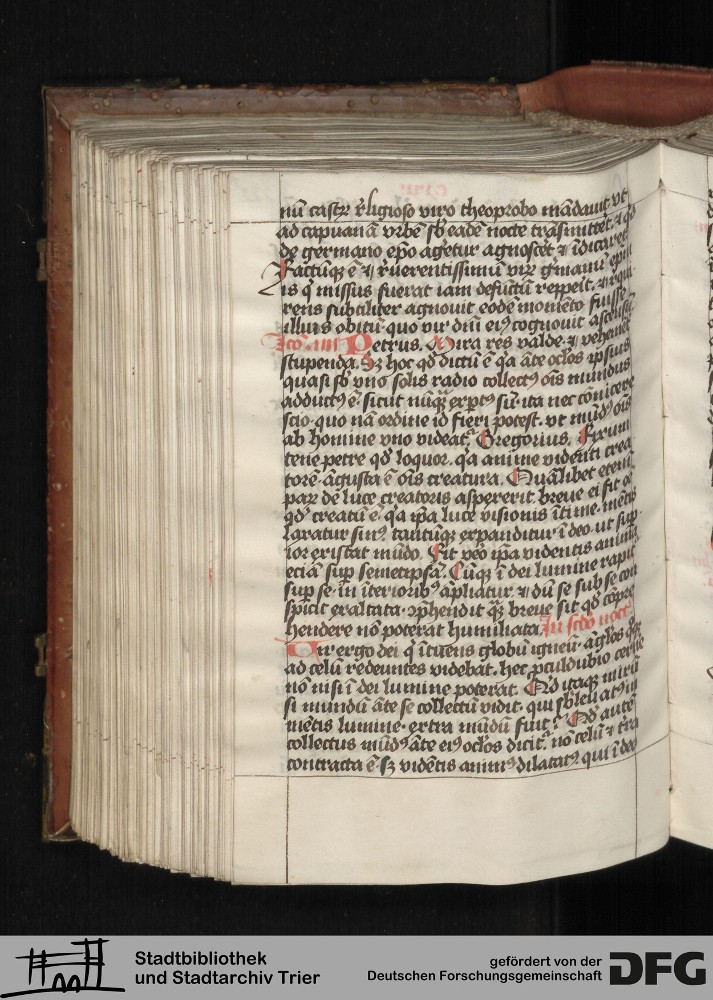 nū castꝝ r̄ligioso viro theoprobo mādauit vt
ad capuanā vrbē sb̄ eadē nocte trāsmittet̄. ⁊ qd̄
de germano ep̄o agetur agnoscēt ⁊ īdicaret
Factūqꝫ ē ⁊ r̄uerentissimū virꝝ gmanū ep̄m
is q̄ missus fuerat iam defūctū repꝑit. ⁊ requi
rens subtiliter agnouit eodē momēto fuisse
illius obitū quo vir dn̄i eiꝰ cognouit ascensū.
Petrus. Mira res valde ⁊ vehemēt̄
stupenda. Sꝫ hoc qd̄ dictū ē qa āte oclōs ipsius
quasi sb̄ vno solis radio collectꝰ ois mundus
adductꝰ ē. sicut nūqꝫ exptꝰ sū. ita nec cōnicere
scio. quo nā ordine id fieri potest. vt mūdꝰ ois
ab homine vno videat̄. Gregorius. Fixum
tene petre qd̄ loquor. qa anime videnti crea
torē āgusta ē ois creatura. Quālibet etenī
paꝝ de luce creatoris aspexerit. breue ei fit oē
qd̄ creatū ē. qa ip̄a luce visionis ītime. mētis
laxatur sinꝰ. tantūqꝫ expanditur ī deo. ut sup̄
ior existat mūdo. Fit v̄o ip̄a videntis anima
eciā sup̄ semetipsā. Cūqꝫ ī dei lumine rapit̄
sup̄ se. in īterioribꝰ āpliatur. ⁊ dū se sub se con
spicit exaltata. cōphendit qꝫ breue sit qd̄ cōpre
hendere nō poterat humiliata. In scd̄o noct̄.
Qui ergo dei q̄ ītuens globū igneū. āglos qꝫ
ad celū redeuntes videbat. hec p̄culdubio cerne
nō nisi ī dei lumine poterat. Quid itaqꝫ mirū
si mundū āte se collectū vidit. qui sb̄leuatꝰ ī
mētis lumine extra mūdū fuit? Qd̄ autē
collectus mūdꝰ āte eiꝰ oclōs dicit̄. nō celū ⁊ t̄ra
contracta ē. sꝫ vidētis animꝰ dilatatꝰ. qui ī deo
Stadtbibliothek
und Stadtarchiv Trier
gefördert von der
Deutschen Forschungsgemeinschaft DFG